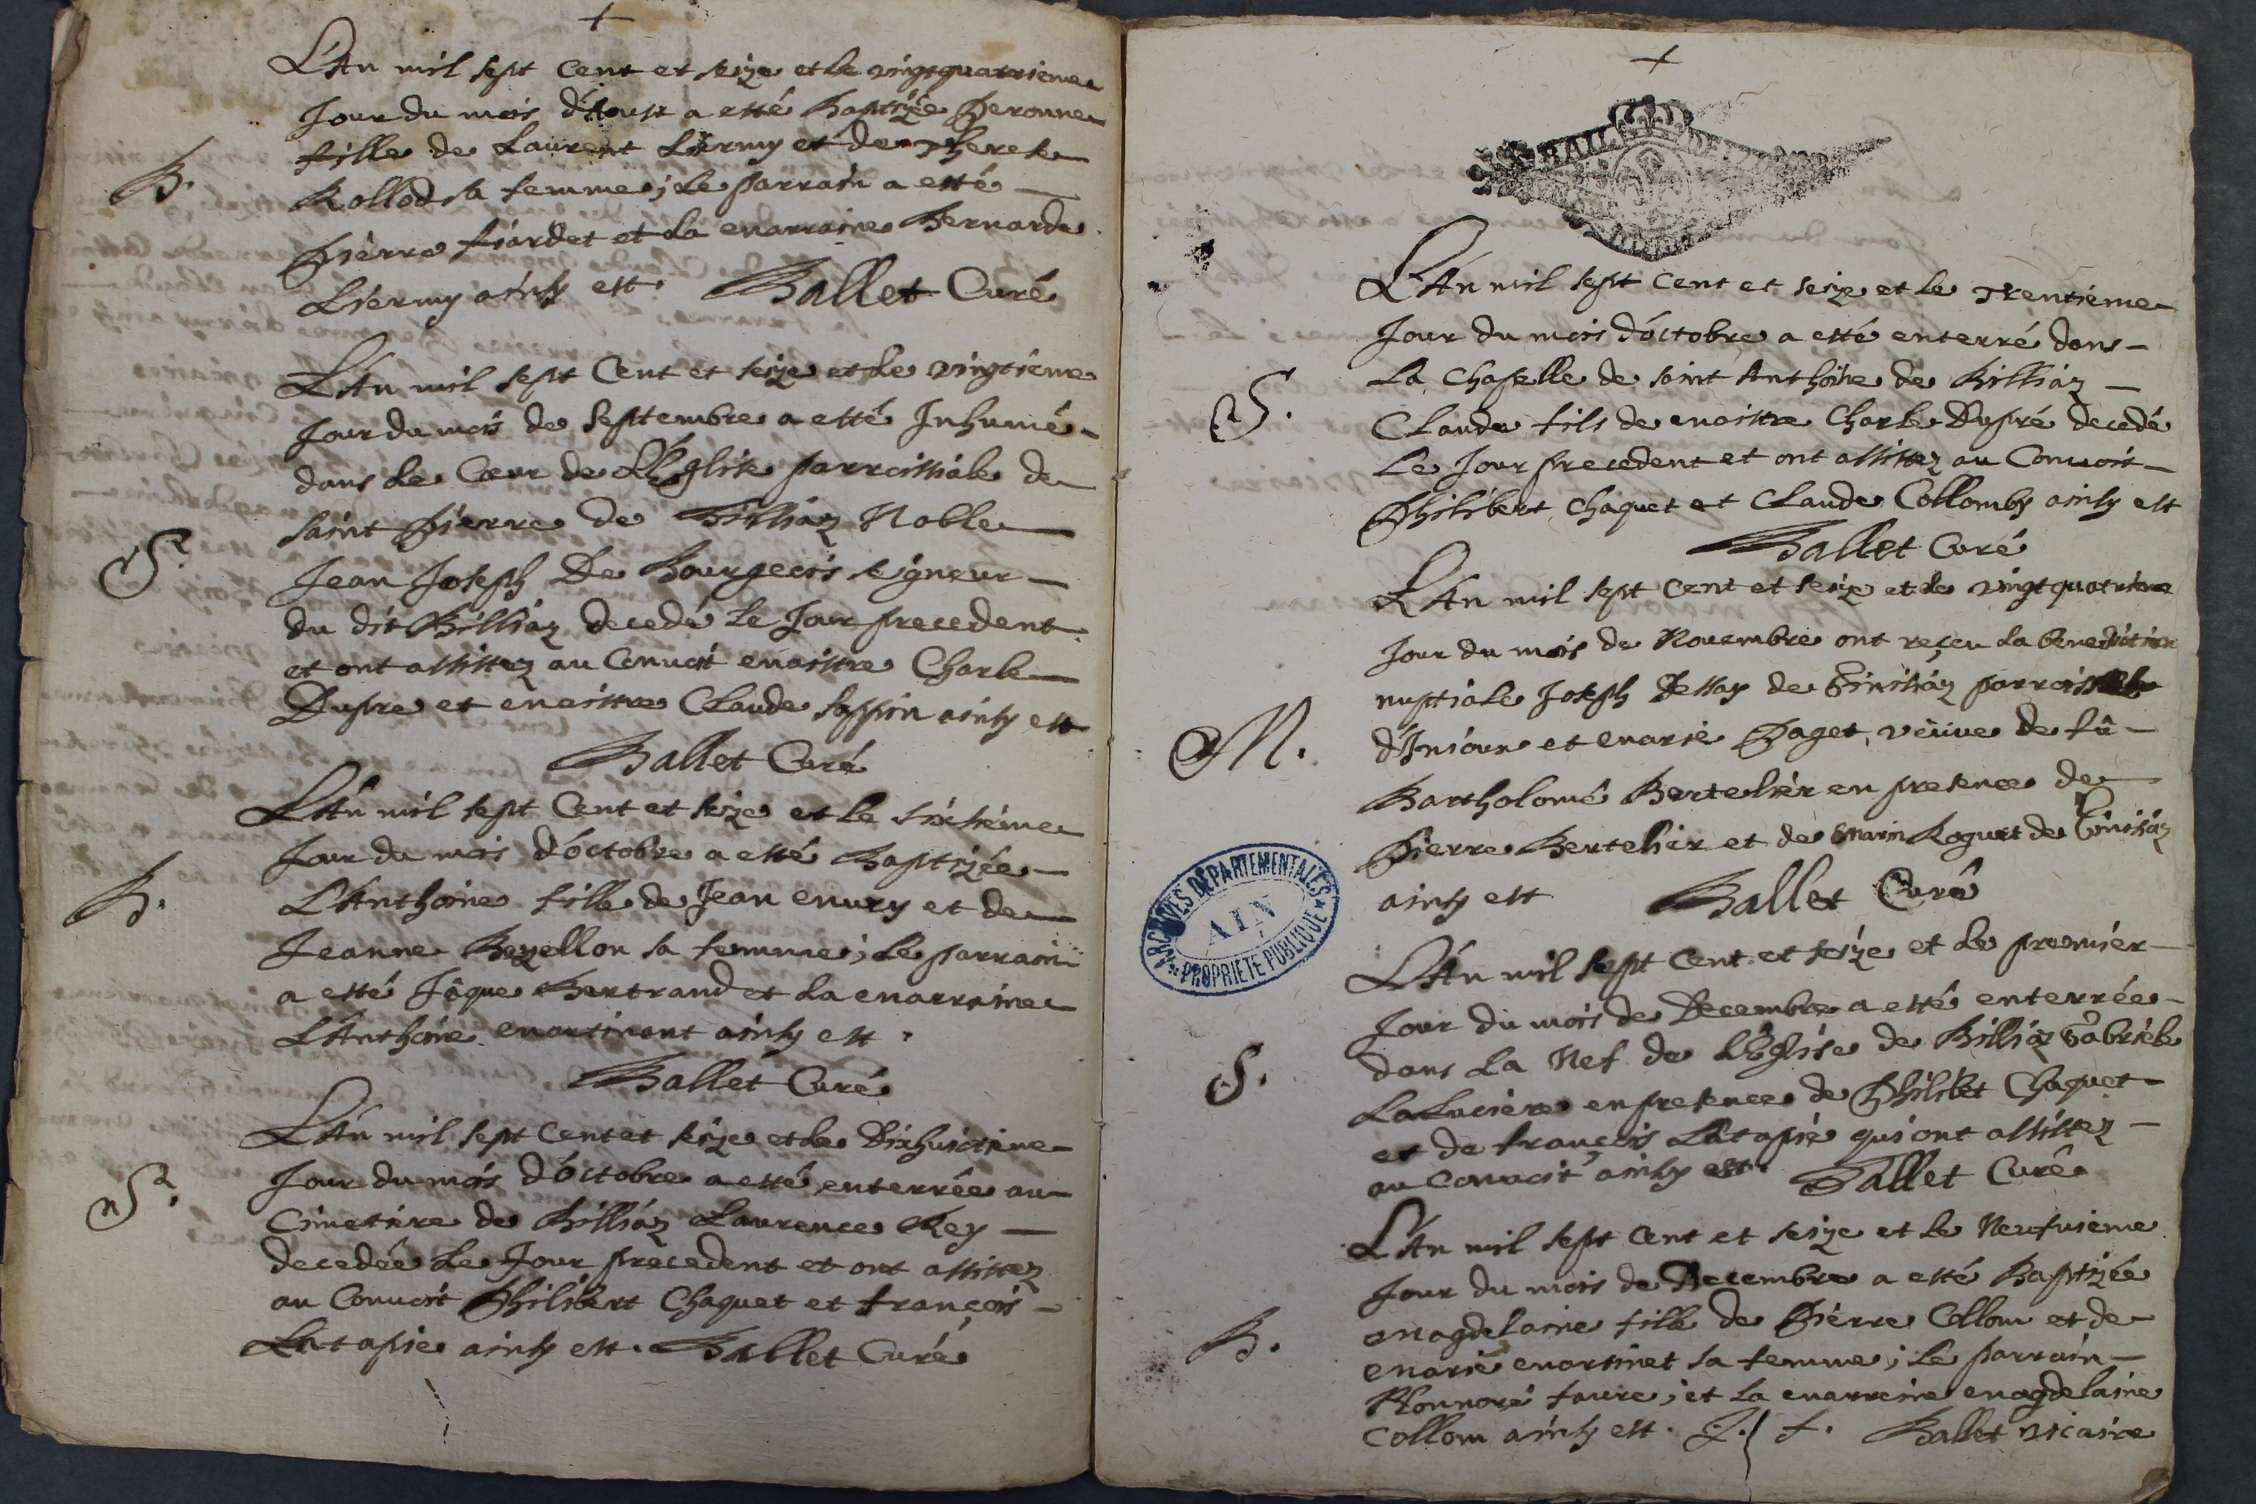 +
L'An mil sept Cent et seize et le vingtquatrieme
Jour du mois d'Aoust a esté Baptizée Peronne
fille de Laurent Liermy et de Therese
B.
Rollod sa femme; Le parrain a esté
Pierre fiardet et La marraine Bernarde
Liermy ainsy est. Ballet Curé
L'An mil sept Cent et seize et Le vingtiéme
Jour du mois de Septembre a esté Inhumé
dans Le Cœur de L'Eglise parroissiale de
saint Pierre de Billiaz Noble
S.
Jean Joseph De Bourgeois seigneur
du dit Billiaz decedé Le Jour precedent
et ont assistez au Convoit maistre Charle
Dupre et maistre Claude soppin ainsy est
Ballet Curé
L'An mil sept Cent et seize et Le sixsiéme
Jour du mois d'octobre a esté Baptizée
B.
L'Anthoine fille de Jean mury et de
Jeanne Bezellon sa femme; Le parrain
a esté Jâque Bertrand et La marraine
L'Anthoine martinant ainsy est.
Ballet Curé
L'An mil sept Cent et seize et Le Dixhuictieme
Jour du mois d'octobre a esté enterrée au
S.
Cimetiere de Billiaz Laurence Rey
decedée Le Jour precedent et ont assistez
au Convoit Philibert Chaquet et françois
Latapie ainsy est. Ballet Curé
+
BAIL DE
L'An mil sept Cent et seize et Le Trentieme
Jour du mois d'octobre a esté enterré dans
La Chapelle de saint Anthoine de Billiaz
S.
CLaude fils de maistre Charle Dupré decedé
Le Jour precedent et ont assistez au Convoit
Philibert Chaquet et CLaude Collomby ainsy est
Ballet Curé
L'An mil sept Cent et seize et Le vingtquatriéme
Jour du mois de Novembre ont reçeu La Benediction
nuptiale Joseph Jessay de Giniliaz parroisse
M.
d'Inioux et marie Paget, veüve de fû
Bartholomé Bertelier en presence de
Pierre Bertelier et de marin Roguet de Giniliaz
ainsy est Ballet Curé
ARCHIVES DÉPARTEMENTALES
AIN
PROPRIETE PUBLIQUE
L'An mil sept Cent et seize et Le premier
Jour du mois de Decembre a esté enterrée
dans La Nef de L'Eglise de Billiaz Gabriele
S.
LaLuciere en presence de Philibet Chaquet
et de françois Latapie qui ont assistez
au Convoit ainsy est. Ballet Curé
L'An mil sept Cent et seize et Le Neufvieme
Jour du mois de Decembre a esté Baptizée
magdelaine fille de Pierre Collom et de
B.
marie martinet sa femme; Le parrain
Honnoré favre; et La marreine magdelaine
Collom ainsy est. Ballet vicaire